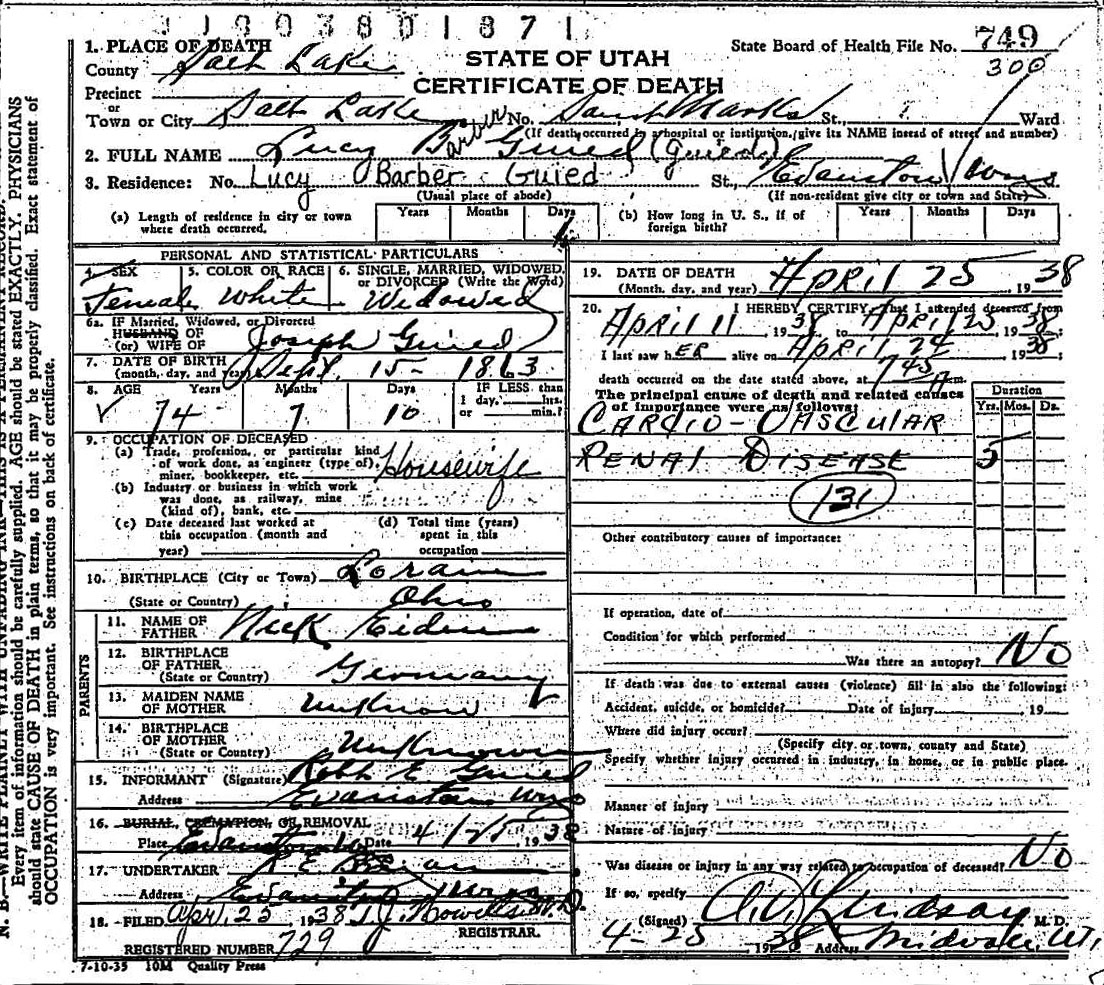 1003801871
1. PLACE OF DEATH
County Salt Lake
STATE OF UTAH
CERTIFICATE OF DEATH
State Board of Health File No. 749
300
Precinct
or
Town or City Salt Lake No. Saint Marks St., Ward
(If death occurred in a hospital or institution, give its NAME instead of street and number)
2. FULL NAME Lucy Barber Guied (Guied)
3. Residence: No. Lucy Barber Guied St., Evanston Wyo
(Usual place of abode) (If non-resident give city or town and State)
(a) Length of residence in city or town where death occurred. Years Months Days
(b) How long in U. S., if of foreign birth? Years Months Days
PERSONAL AND STATISTICAL PARTICULARS
4. SEX 5. COLOR OR RACE 6. SINGLE, MARRIED, WIDOWED, or DIVORCED (Write the Word)
Female White Widowed
6a. IF Married, Widowed, or Divorced
HUSBAND OF
(or) WIFE OF Joseph Guied
7. DATE OF BIRTH
(month, day, and year) Sept. 15- 1863
8. AGE Years Months Days IF LESS than
1 day, hrs.
or min.?
74 7 10
9. OCCUPATION OF DECEASED
(a) Trade, profession, or particular kind
of work done, as engineer (type of),
miner, bookkeeper, etc. Housewife
(b) Industry or business in which work
was done, as railway, mine
(kind of), bank, etc.
(c) Date deceased last worked at
this occupation (month and
year)
(d) Total time (years)
spent in this
occupation
10. BIRTHPLACE (City or Town) Lorain
(State or Country) Ohio
PARENTS
11. NAME OF
FATHER Nick Eiden
12. BIRTHPLACE
OF FATHER
(State or Country) Germany
13. MAIDEN NAME
OF MOTHER Unknow
14. BIRTHPLACE
OF MOTHER
(State or Country) Unknown
15. INFORMANT (Signature) Robt E Guied
Address Evanston Wyo
16. BURIAL, CREMATION, OR REMOVAL
Place Evanston Date 4/25, 1938
17. UNDERTAKER
Address Evanston Wyo
18. FILED Apr. 25 1938 T.J. Howells M.D.
REGISTRAR.
REGISTERED NUMBER 729
7-10-35 10M Quality Press
19. DATE OF DEATH
(Month, day, and year) April 25, 1938
20. I HEREBY CERTIFY, That I attended deceased from
April 11, 1938, to April 25, 1938;
I last saw hER alive on April 24 1938;
death occurred on the date stated above, at 745 A m.
The principal cause of death and related causes
of importance were as follows:
Duration
Yrs. Mos. Ds.
CARDIO-VASCULAR
RENAL DISEASE 5
131
Other contributory causes of importance:
If operation, date of
Condition for which performed
Was there an autopsy? No
If death was due to external causes (violence) fill in also the following:
Accident, suicide, or homicide? Date of injury , 19
Where did injury occur?
(Specify city or town, county and State)
Specify whether injury occurred in industry, in home, or in public place.
Manner of injury
Nature of injury
Was disease or injury in any way related to occupation of deceased? No
If so, specify
(Signed) A.V. Lindsay M. D.
4-25 1938 Address Midvale, Ut.
N. B.—WRITE PLAINLY WITH UNFADING INK—THIS IS A PERMANENT RECORD.
Every item of information should be carefully supplied. AGE should be stated EXACTLY. PHYSICIANS
should state CAUSE OF DEATH in plain terms, so that it may be properly classified. Exact statement of
OCCUPATION is very important. See instructions on back of certificate.